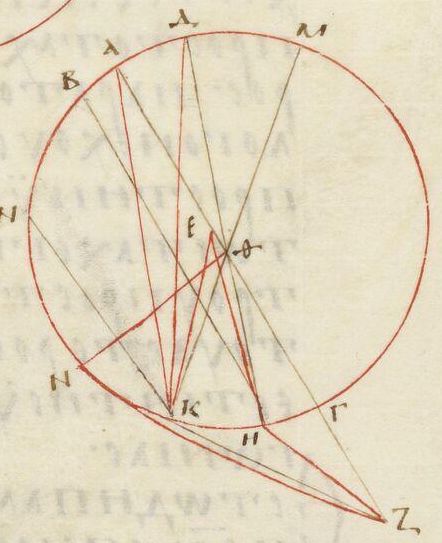 Δ
Μ
Α
Β
Ν
Ε
Θ
Ν
Κ
Η
Γ
Ζ